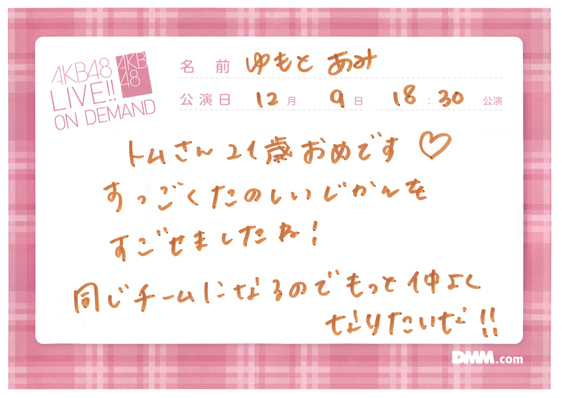 AKB48
LIVE!!
ON DEMAND
AKB
48
名 前 ゆもと あみ
公演日 12月 9日 18:30 公演
トムさん21歳おめです♡
すっごくたのしいじかんを
すごせましたね!
同じチームになるのでもっと仲よく
なりたいな!!
DMM.com